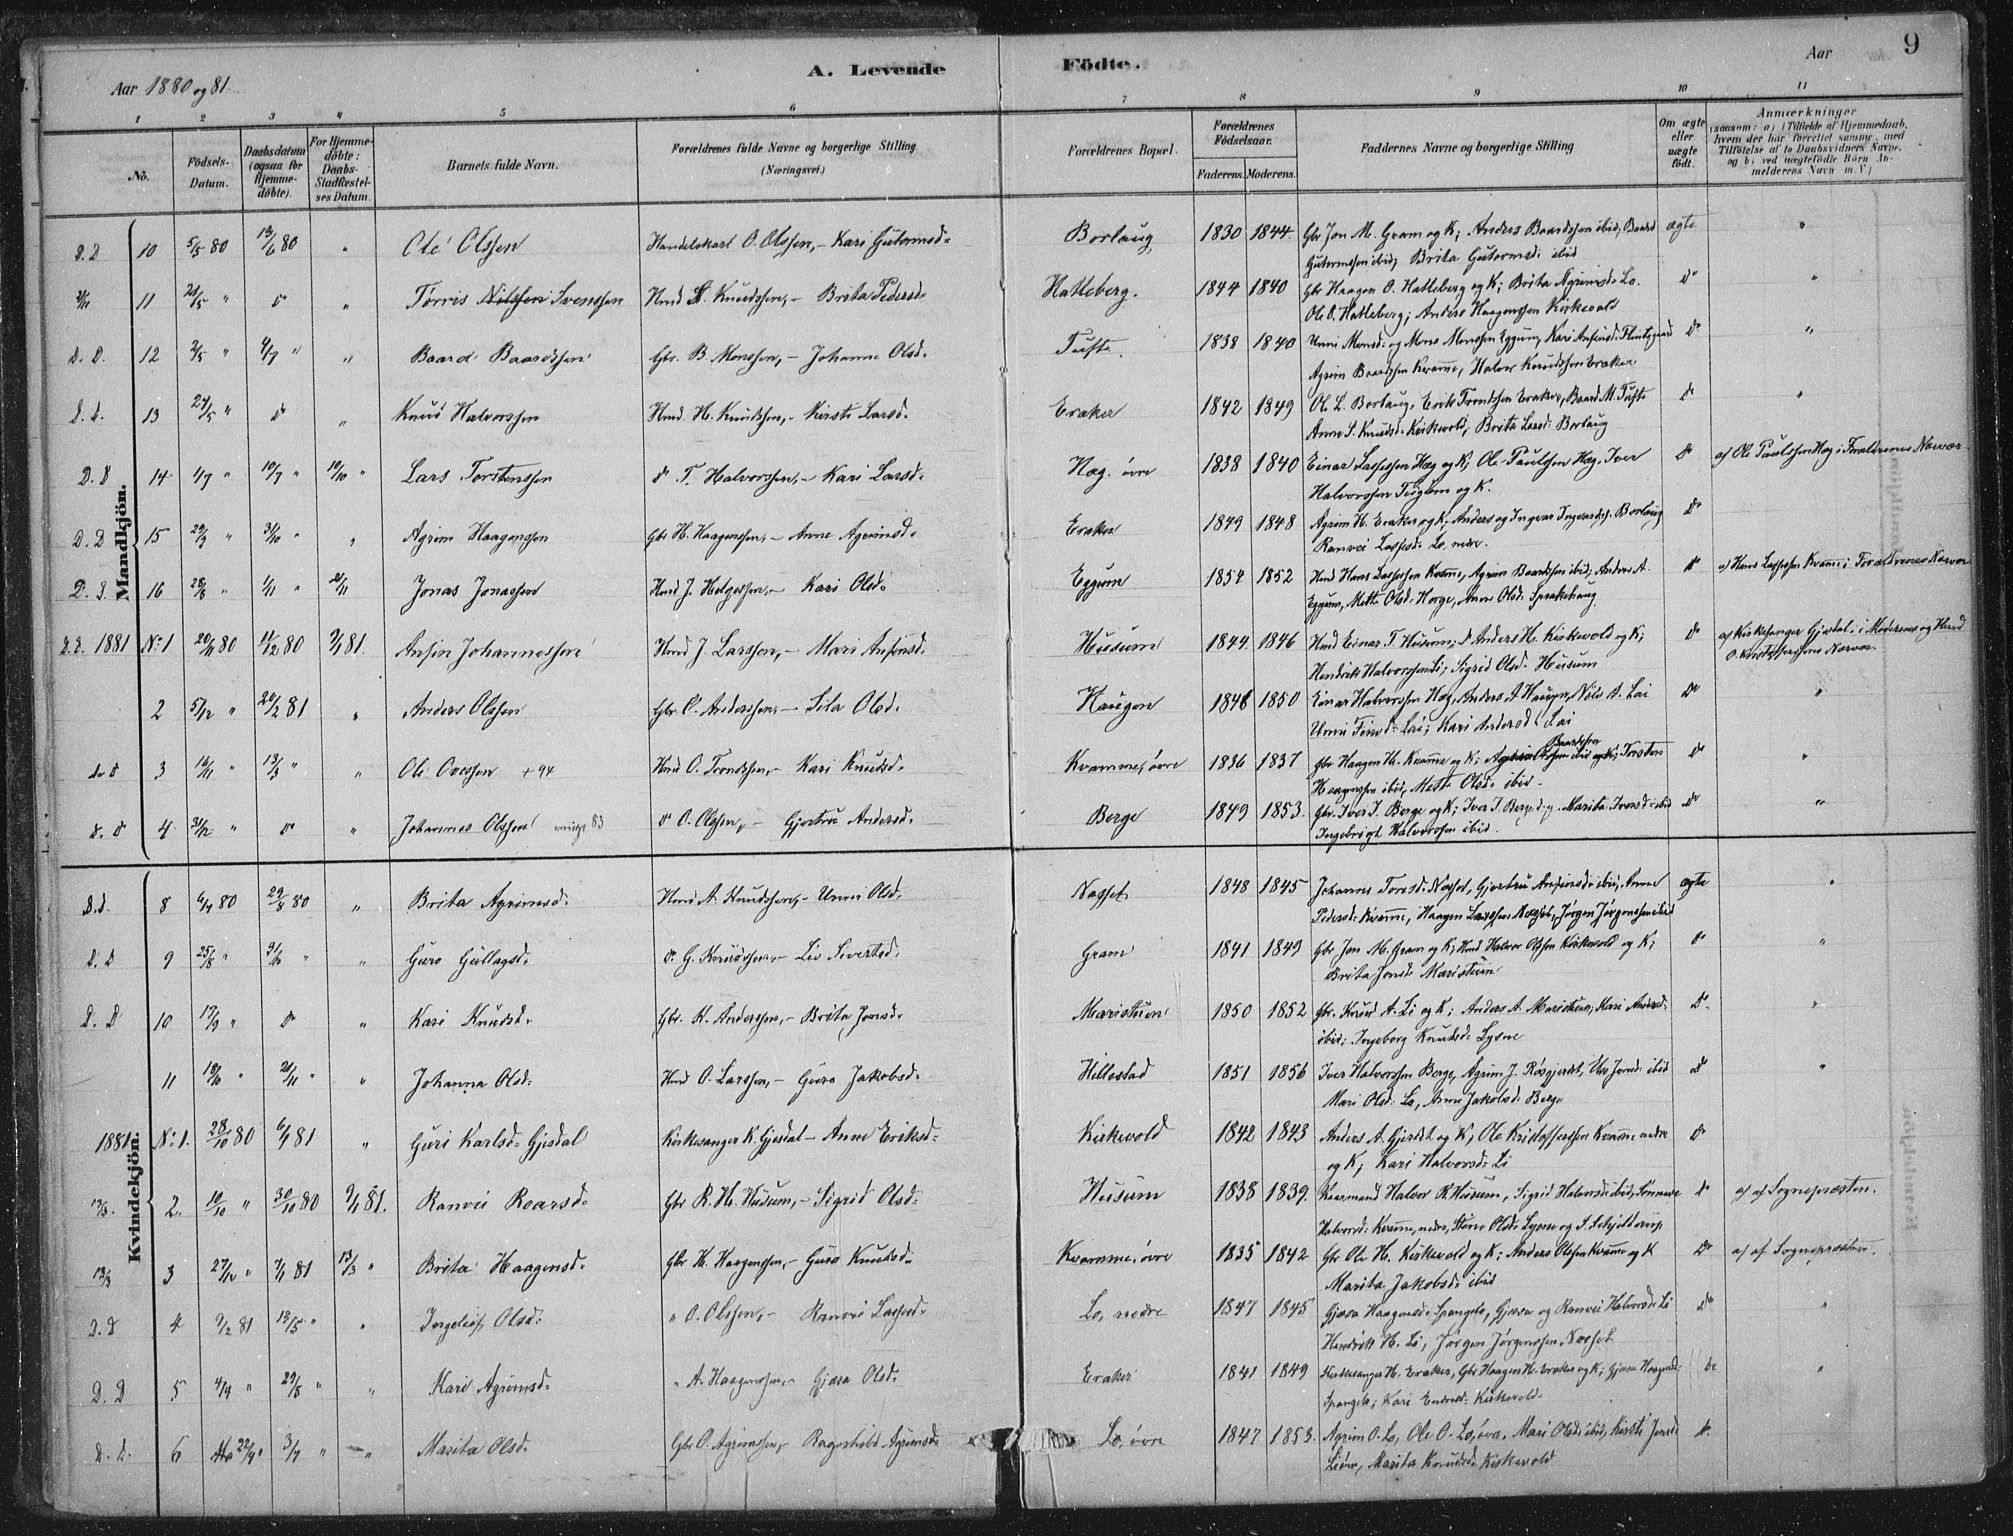 Aar 1880 og 81.
A. Levende
Födte.
Aar
9
1 2 3 4 5 6 7 8 9 10 11
No. Födsels-Datum. Daabsdatum (ogsaa for Hjemmedöbte). For Hjemmedöbte: Daabs-Stadfæstelses Datum. Barnets fulde Navn. Forældrenes fulde Navne og borgerlige Stilling (Næringsvei.) Forældrenes Bopæl. Forældrenes Födselsaar. Faderens. Moderens. Faddernes Navne og borgerlige Stilling Om ægte eller uægte födt. Anmærkninger (saasom: a) i Tilfælde af Hjemmedaab, hvem der har forrettet samme, med Tilföielse af to Daabsvidners Navne, og b) ved uægtefödte Börn Anmelderens Navn m. V.)
Mandkjön.
D. D 10 5/5 80 13/6 80 " Ole Olssen Handelskarl O. Olssen, – Kari Gutormsd. Borlaug 1830 1844. Gbr Jon M. Gram og K; Anders Baardssen ibid; Baard ægte "
Gutormssen ibid; Brita Gutormsd: ibid
11 " " Torris Nilssen Svenssen Hmd S. Knudssen, – Brita Pedersd. Hatleberg. 1844 1840 Gbr Haagen O. Hatleberg og K; Brita Agrimsd: Lo. do "
Ole O. Hatleberg; Anders Haagenssen Kirkevold
D. D. 12 2/5 " 4/7 " " Baard Baardssen Gbr. B. Monssen, – Johanne Olsd. Tufte. 1838 1840 Unni Monsd: og Mons Monssen Eggum, Kari do "
Agrim Baardssen Kvamme, Halvor Knudssen Eraker
D. D. 13 24/5 " do " Knud Halvorssen Hmd H. Knudssen, – Kirsti Larsd. Eraker 1842 1849 Ole L. Borlaug, Erik Trondssen Eraker, Baard M. Tufte do "
Anne S. Knudsd: Kirkevold; Brita Larsd: Borlaug
D. D 14 4/7 " 10/7 " 10/10 " Lars Torstenssen do T. Halvorssen, – Kari Larsd. Hæg. övre 1838 1840 Einar Lassessen Hæg og K; Ole Paulssen Hæg, Iver do a) Ole Paulssen Hæg i Forældrenes Nærvær
Halvorssen Tuglum og K.
D. D 15 29/9 " 31/10 " " Agrim Haagenssen Gbr H. Haagenssen, – Anne Agrimsd. Eraker 1849 1848 Agrim H. Eraker og K; Anders og Ingvar Ingvardss. Borlaug do
Ranvei Lassesd: Lo, nedre.
16 28/8 " 1/11 " 21/11 Jonas Jonassen Hmd J. Helgessen, – Kari Olsd. Eggum 1854 1852 Hmd Hans Lassessen Kvamme, Agrim Baardssen ibid; Anders A. do a) Hans Lassessen Kvamme i Forældrenes Nærvær
Eggum, Mette Olsd: Horge, Anne Olsd: Sprakehaug
D. D. 1881 No: 1 20/11 80 11/12 80 9/1 81. Ansin Johannessen Hmd J. Larssen, – Mari Ansinsd. Husum 1844. 1846 Hmd Einar T. Husum; do Anders H. Kirkevold og K; do a) Kirkesanger Gjesdal i Moderens og Hmd
Hendrik Halvorssen Li; Sigrid Olsd: Husum O. Kristofferssens Nærvær.
2 5/12 " 20/2 81 " Anders Olssen Gbr O. Anderssen, – Sila Olsd. Haugen 1846 1850 Einar Halvorssen Hæg, Anders A Haugen, Nils A. Lai do "
Unni Finsd: Lai; Kari Andersd: Lai
D. D 3 16/11 " 13/3 " " Ole Ovessen + 94 Hmd O. Trondssen, – Kari Knudsd. Kvamme, övre 1836 1837 Gbr Haagen H. Kvamme og K; Agrim Baardssen ibid og K; Torsten do "
Haagenssen ibid, Mette Olsd: ibid.
D. D 4 31/12 " do " Johannes Olssen 83 do O. Olssen, – Gjertru Andersd. Berge 1849 1853. Gbr. Iver I. Berge og K; Iver I. Berge d.y. Marita Iversd: ibid do "
Ingebrigt Halvorssen ibid.
Kvindekjön.
D. D. 8 4/4 80 29/8 80 " Brita Agrimsd. Hmd A. Knudssen, – Unni Olsd. Nasset 1848 1845 Johannes Toresd: Næsset, Gjertru Ansinsd: ibid; Anne ægte "
Pedersd: Kvamme, Haagen Larssen Næsset, Jörgen Jörgenssen ibid
D. D 9 25/8 " 31/10 " " Guro Gullagsd. do G. Knudssen, – Liv Siverted. Gram 1841 1849 Gbr. Jon M. Gram og K; Hmd Halvor Olssen Kirkevold og K; do "
Brita Jonsd: Maristuen
D. D 10 17/9 " do " Kari Knudsd. Gbr. K. Anderssen, – Brita Jonsd. Maristuen 1850 1852 Gbr. Knud A. Li og K; Anders A. Maristuen; Kari Andersd: do "
ibid; Ingeborg Knudsd: Lysne
11 18/10 " 21/11 " " Johanna Olsd: Hmd O. Larssen, – Guro Jakobsd. Hillestad 1851 1856 Iver Halvorssen Berge, Agrim J. Rösgjerdet, Jonsd: ibid do "
Mari Olsd: Lo, Anne Jakobsd: Berge
1881 No: 1. 28/10 80 6/1 81 " Guri Karlsd. Gjesdal Kirkesanger K. Gjesdal – Anne Eriksd. Kirkevold 1842 1843 Anders A. Gjerdet og K; Ole Kristofferssen Kvamme nedre do
og K; Kari Halvorsd: Li
13/3. 2. 10/10 " 30/10 80 9/1 81. Ranvei Roarsd. Gbr R. H. Husum, – Sigrid Olsd. Husum 1838 1839. Halvor R. Husum, Sigrid Halvorsd: ibid, Synneve do a) af Sognepræsten.
Halvorsd: Kvamme, nedre, Stine Olsd: Lysne og S. Schjelderup
13/3 3 27/12 " 7/1 81 13/3 " Brita Haagensd. Gbr H. Haagenssen, – Guro Knudsd. Kvamme, övre 1835 1842 Gbr Ole H. Kirkevold og K; Anders Olssen Kvamme og K do a) af Sognepræsten.
Marita Jakobsd: ibid
D. D 4 9/2 81 13/5 " " Ingeleif Olsd: " O. Olssen, – Ranvei Lassesd. Lo, nedre 1847 1845 Gjøsa Haagensd: Spangelo, Gjøsa og Ranvei Halvorsd: Li do "
Hendrik H. Li, Jörgen Jörgenssen Næsset
D. D 5 4/4 " 29/5 " " Kari Agrimsd. " A. Haagenssen, – Gjøsa Olsd. Eraker 1841 1849 Kirkesanger H. Eraker, Gbr Haagen H. Eraker og K; Gjøsa Haagensd: do "
Spangelo; Kari Kirkevold.
D. D. 6 22/4 " 3/7 " " Marita Olsd: Gbr O. Agrimssen, – Ragnhild Agrimsd. Lo, övre 1847 1853. Agrim O. Lo, Ole O. Lo, övre, Mari Olsd: ibid, Kirsti Jonsd: do
Marita Knudsd: Kirkevold